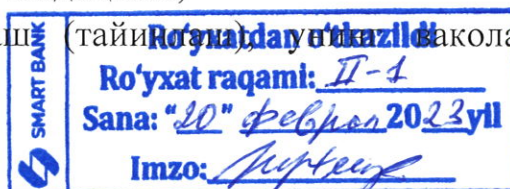 аш (тайинлаш), унинг вакола
SMART BANK
Ro'yxatdan o'tkazildi
Ro'yxat raqami: II-1
Sana: "20" феврал 2023 yil
Imzo: